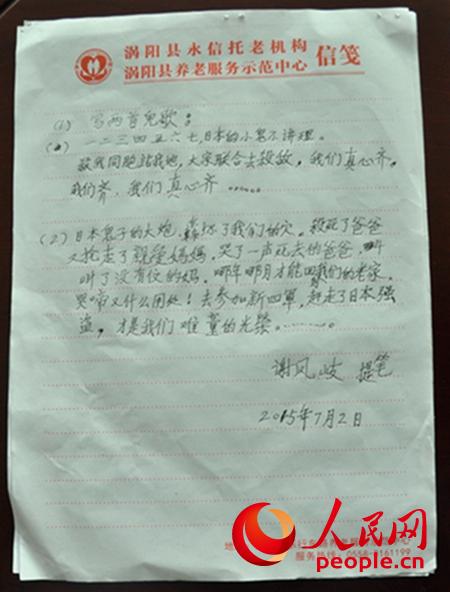 涡阳县永信托老机构
涡阳县养老服务示范中心 信笺
(1) 写两首儿歌:
一二三四五六七,日本的小鬼不讲理。
杀我同胞站我地,大家联合去杀敌,我们真心齐。
我们齐,我们真心齐……
(2)日本鬼子的大炮,轰坏了我们的穴。杀死了爸爸
又抢走了亲爱妈妈,哭了一声死去的爸爸,叫
叫了没有位的妈。哪年哪月才能回我们的老家。
哭啼又什么用处!去参加新四军,赶走了日本强
盗,才是我们难童的光荣。……
谢风岐 提笔
2015年7月2日
人民网
people.cn
服务热线:0558-8161199